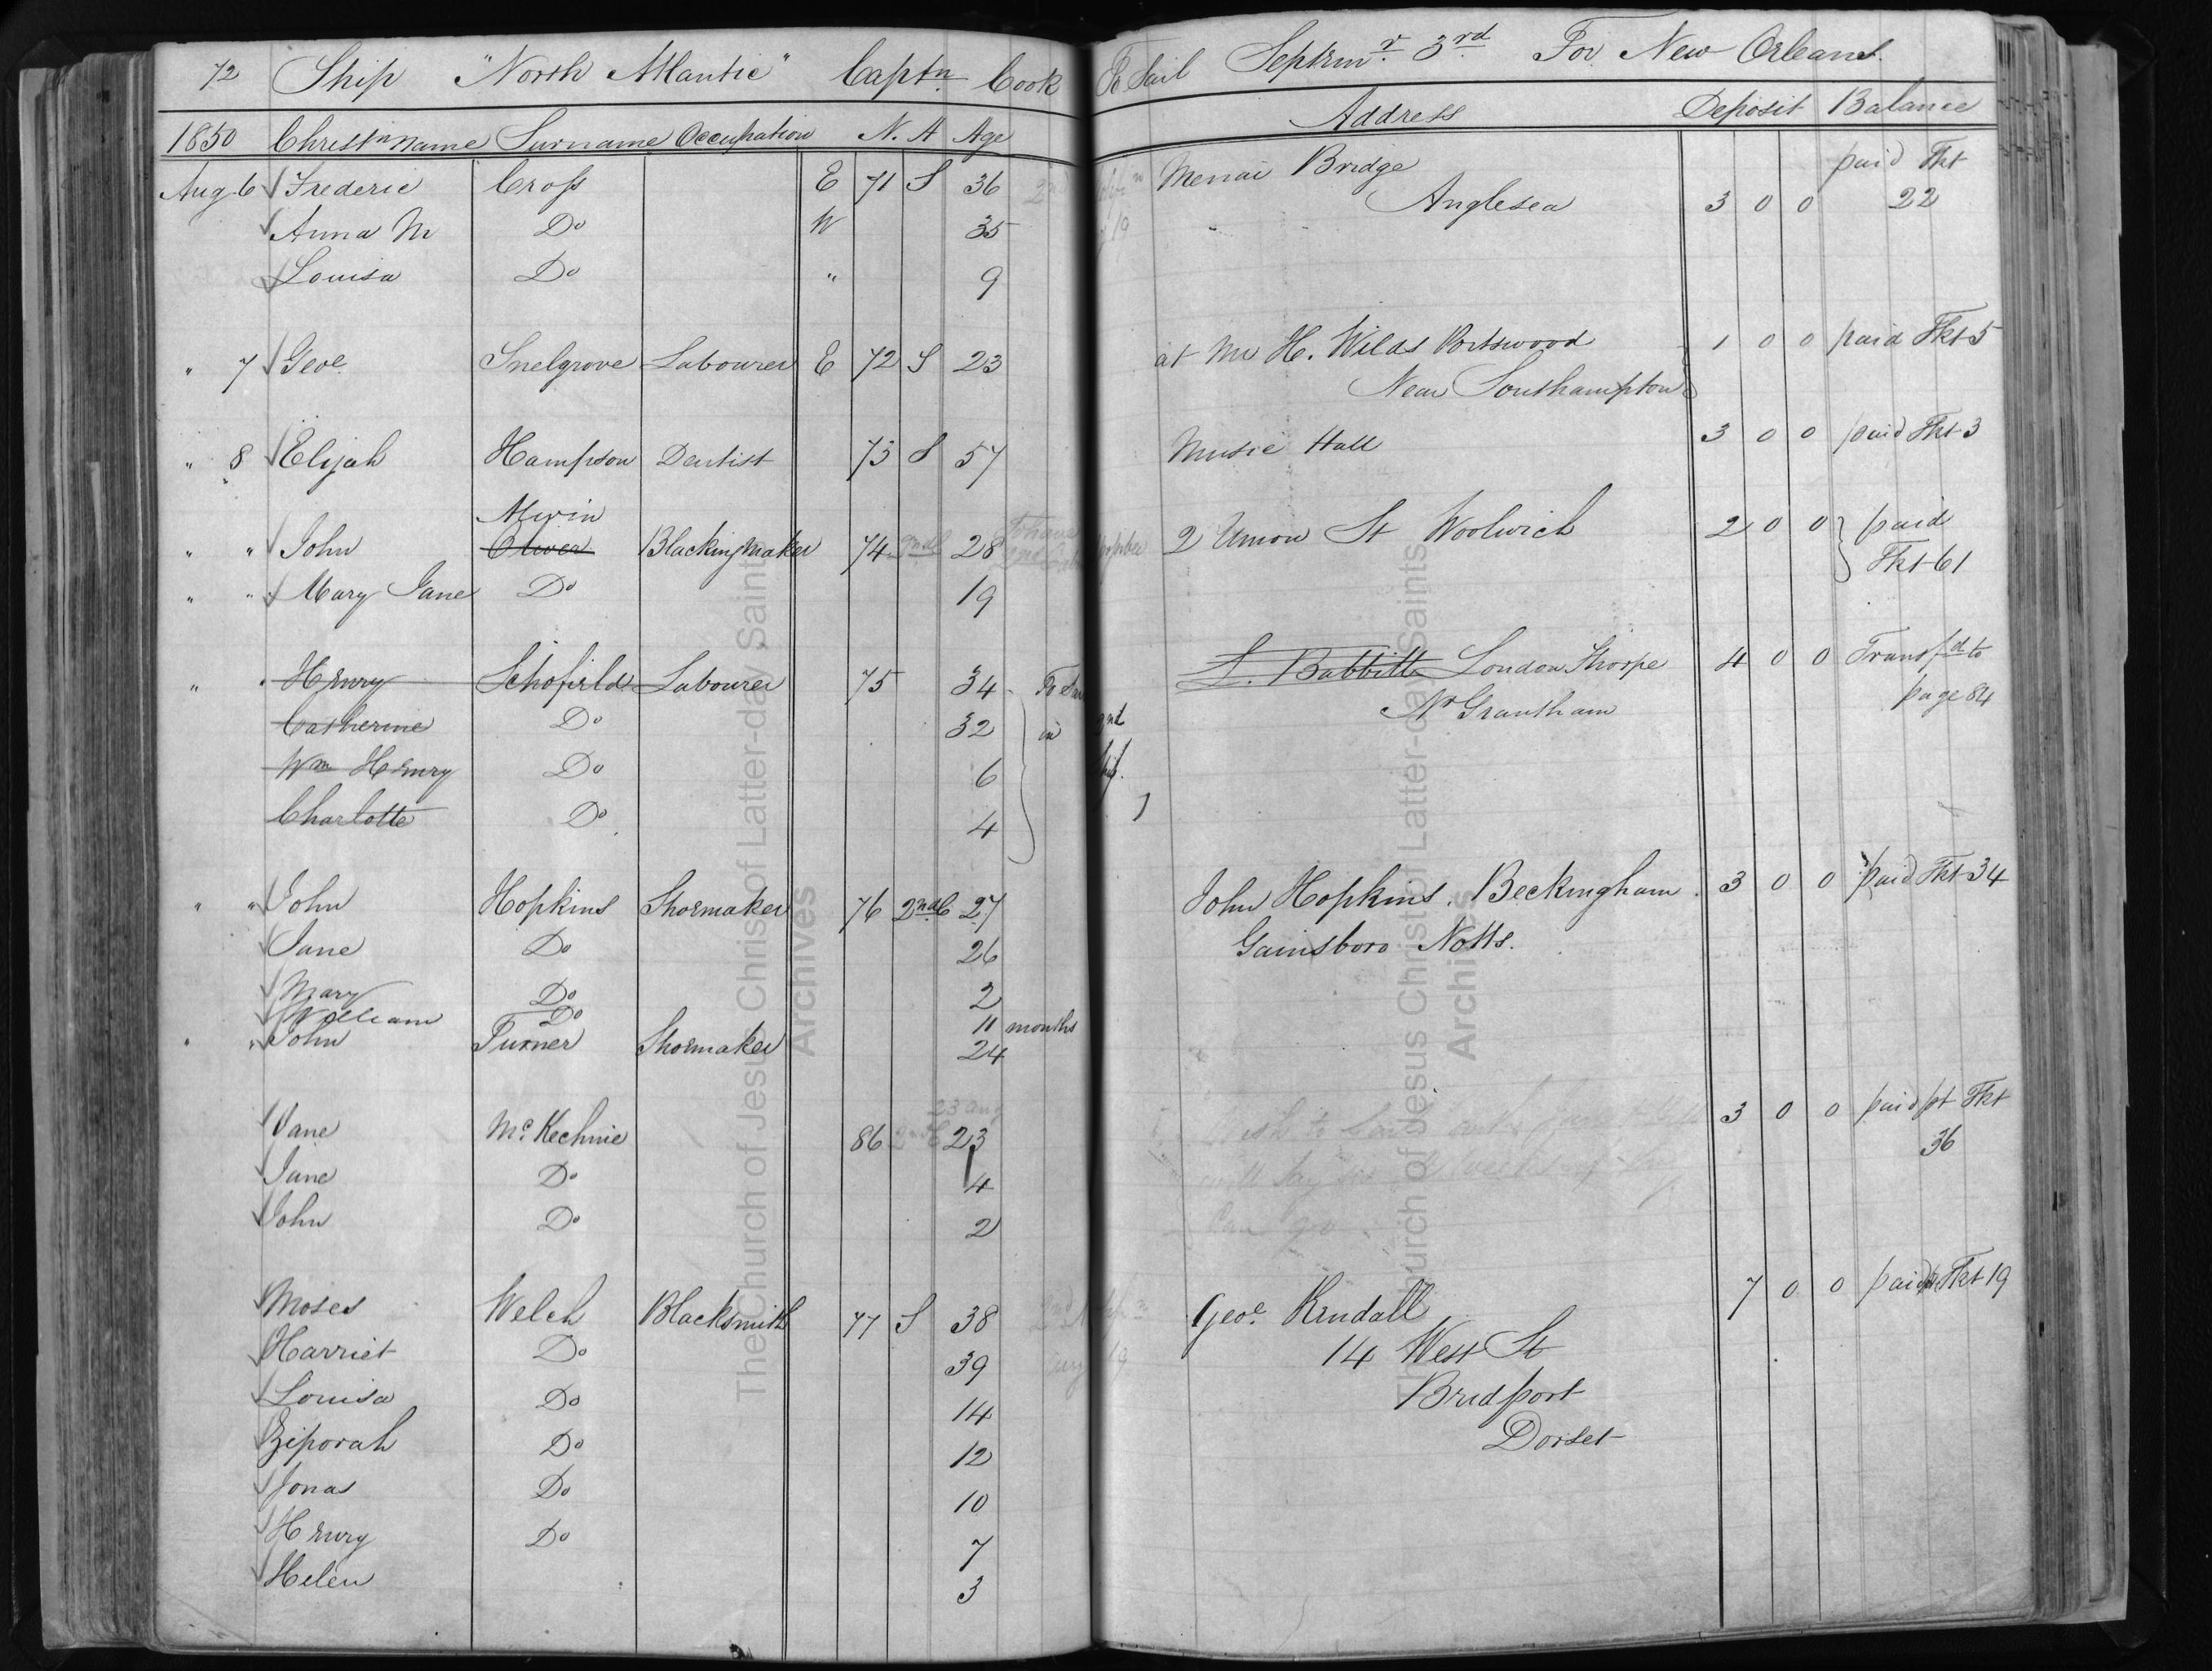 72 Ship "North Atlantic" Captn. Cook To Sail Septemr. 3rd For New Orleans.
1850 Christn name Surname Occupation N. A Age Address Deposit Balance
Aug 6 Frederic Cross E 71 S 36 Menai Bridge paid Tkt
Anglesea 3 0 0 22
Anna M Do W 35
Louisa Do " 9
" 7 Geoe. Snelgrove Labourer E 72 S 23 at Mr H. Wilds Portswood 1 0 0 paid Tkt 5
Near Southampton
" 8 Elijah Hampson Dentist 73 S 57 Music Hall 3 0 0 paid Tkt 3
Alwin
" " John Oliver Blacking Maker 74 2nd C 28 2 Union St Woolwich 2 0 0 paid
Tkt 61
" " Mary Jane Do 19
" Henry Schofield Labourer 75 34 To Sail L. Babbitt London Thorpe 4 0 0 Transfd to
Catherine Do 32 in 2nd Nr Grantham page 84
Wm Henry Do 6 ship.
Charlotte Do 4
" " John Hopkins Shoemaker 76 2nd C 27 John Hopkins. Beckingham 3 0 0 paid Tkt 34
Jane Do 26 Gainsboro Notts.
Mary Do 2
William Do 11 months
" " John Turner Shoemaker 24
23 Aug
Jane McKechnie 86 2nd C 23 3 0 0 paid pt Tkt
36
Jane Do 4
John Do 2
can go
Moses Welch Blacksmith 77 S 38 Geoe. Kendall 7 0 0 paid Tkt 19
Harriet Do 39 14 West St
Louisa Do 14 Bridport
Ziporah Do 12 Dorset
Jonas Do 10
Henry Do 7
Helen 3
The Church of Jesus Christ of Latter-day Saints
Archives
The Church of Jesus Christ of Latter-day Saints
Archives